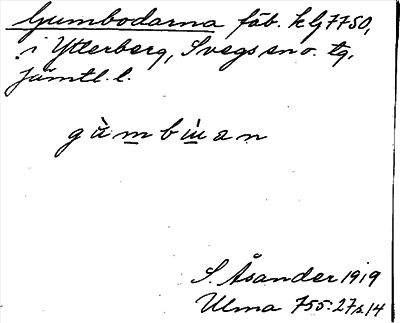 Gumbodarna fäb. kl G7750,
i Ytterberg, Svegs sn o. tg,
Jämtl. l.
gùmbùan
S. Åsander 1919
Ulma 755:27 s. 14